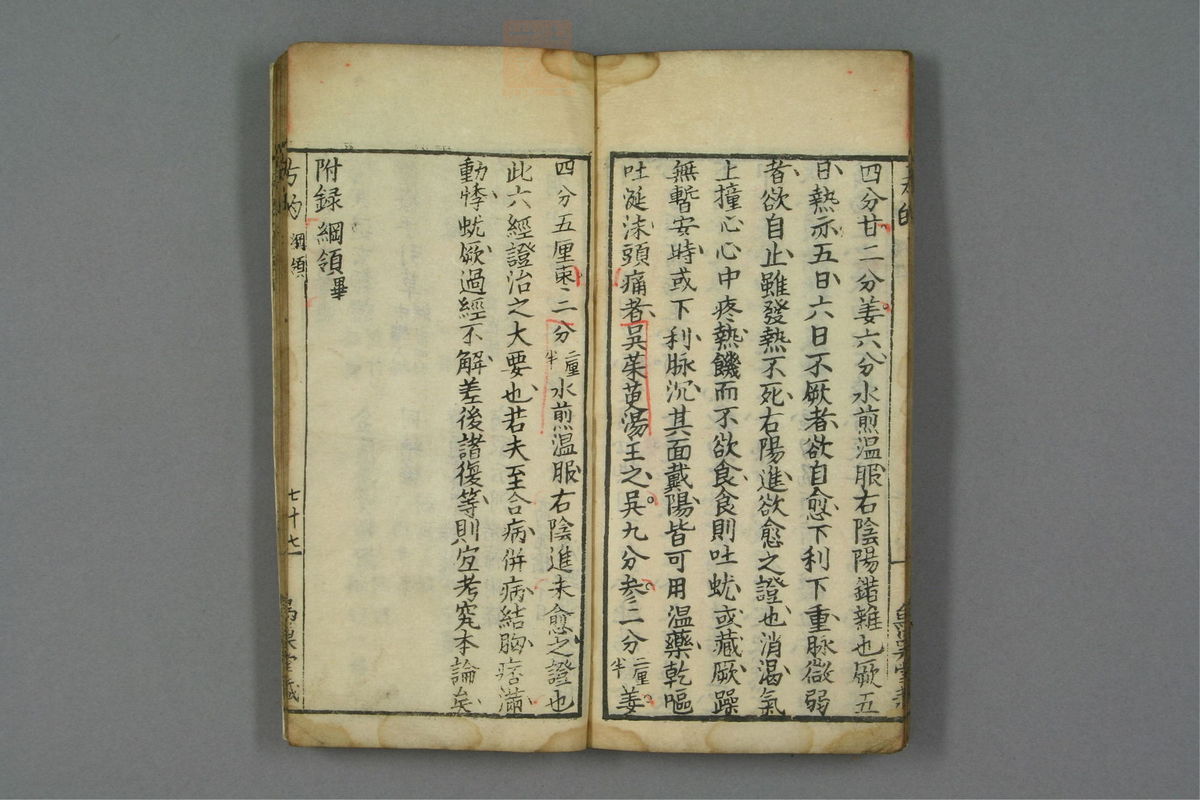 四分甘二分姜六分水煎温服右陰陽錯雜也厥五
日熱亦五日六日不厥者欲自愈下利下重脉微弱
者欲自止雖發熱不死右陽進欲愈之證也消渴氣
上撞心心中疼熱饑而不欲食食則吐蚘或藏厥躁
無暫安時或下利脉沉其面戴陽皆可用温藥乾嘔
吐涎沫頭痛者吳茱萸湯主之吳九分参二分二厘半姜
四分五厘棗二分二厘半水煎温服右陰進未愈之證也
此六經證治之大要也若夫至合病併病結胸痞滿
動悸蚘厥過經不解差後諸復等則宜考究本論矣
附録綱領畢
方的 綱領 七十七